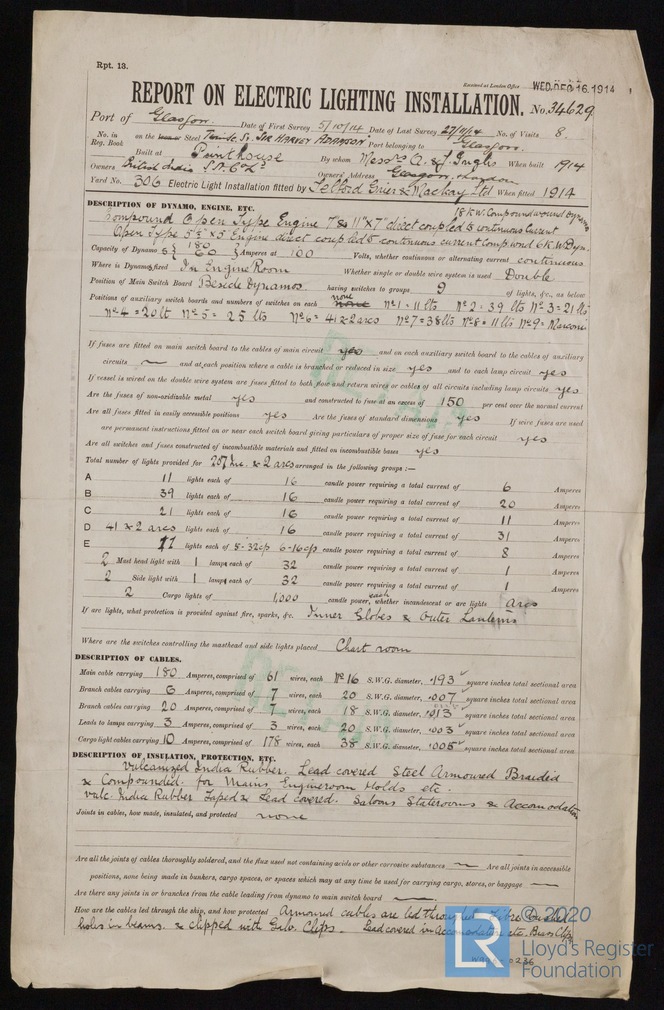 Rpt. 13.
Received at London Office WED. DEC 16. 1914
REPORT ON ELECTRIC LIGHTING INSTALLATION. No. 34629
Port of Glasgow Date of First Survey 5/10/14 Date of Last Survey 27/11/14 No. of Visits 8.
No. in Reg. Book on the Iron or Steel Twin Sc. Sr. SIR HARVEY ADAMSON Port belonging to Glasgow.
Built at Pointhouse By whom Messrs A. & J. Inglis When built 1914
Owners British India S.N. Co Ld Owners' Address Glasgow, London
Yard No. 306 Electric Light Installation fitted by Telford Grier & Mackay Ltd When fitted 1914
DESCRIPTION OF DYNAMO, ENGINE, ETC.
18 K.W. Compound wound Dynamo
Compound Open Type Engine 7" & 11" x 7" direct coupled to continuous current
Open Type 5½ x 5 Engine direct coupled to continuous current Comp. wound 6 K.W. Dyn.
Capacity of Dynamos { 180 60 } Amperes at 100 Volts, whether continuous or alternating current continuous
Where is Dynamo fixed In Engine Room Whether single or double wire system is used Double
Position of Main Switch Board Beside Dynamos having switches to groups 9 of lights, &c., as below
Positions of auxiliary switch boards and numbers of switches on each none No 1 = 11 lts No 2 = 39 lts No 3 = 21 lts
No 4 = 20 lt No 5 = 25 lts No 6 = 41 & 2 arcs No 7 = 38 lts No 8 = 11 lts No 9 = Marconi
If fuses are fitted on main switch board to the cables of main circuit yes and on each auxiliary switch board to the cables of auxiliary
circuits — and at each position where a cable is branched or reduced in size yes and to each lamp circuit yes
If vessel is wired on the double wire system are fuses fitted to both flow and return wires or cables of all circuits including lamp circuits yes
Are the fuses of non-oxidizable metal yes and constructed to fuse at an excess of 150 per cent over the normal current
Are all fuses fitted in easily accessible positions yes Are the fuses of standard dimensions yes If wire fuses are used
are permanent instructions fitted on or near each switch board giving particulars of proper size of fuse for each circuit yes
Are all switches and fuses constructed of incombustible materials and fitted on incombustible bases yes
Total number of lights provided for 207 Inc. & 2 arcs arranged in the following groups :—
A 11 lights each of 16 candle power requiring a total current of 6 Amperes
B 39 lights each of 16 candle power requiring a total current of 20 Amperes
C 21 lights each of 16 candle power requiring a total current of 11 Amperes
D 41 & 2 arcs lights each of 16 candle power requiring a total current of 31 Amperes
E 11 lights each of 5-32cp 6-16cp candle power requiring a total current of 8 Amperes
2 Mast head light with 1 lamps each of 32 candle power requiring a total current of 1 Amperes
2 Side light with 1 lamps each of 32 candle power requiring a total current of 1 Amperes
2 Cargo lights of 1,000 candle power, each whether incandescent or arc lights Arcs
If arc lights, what protection is provided against fire, sparks, &c. Inner Globes & Outer Lanterns
Where are the switches controlling the masthead and side lights placed Chart room
DESCRIPTION OF CABLES.
Main cable carrying 180 Amperes, comprised of 61 wires, each No 16 S.W.G. diameter, .193 square inches total sectional area
Branch cables carrying 6 Amperes, comprised of 7 wires, each 20 S.W.G. diameter, .007 square inches total sectional area
Branch cables carrying 20 Amperes, comprised of 7 wires, each 18 S.W.G. diameter, .013 square inches total sectional area
Leads to lamps carrying 3 Amperes, comprised of 3 wires, each 20 S.W.G. diameter, .003 square inches total sectional area
Cargo light cables carrying 10 Amperes, comprised of 178 wires, each 38 S.W.G. diameter, .005 square inches total sectional area
DESCRIPTION OF INSULATION, PROTECTION, ETC.
Vulcanized India Rubber. Lead covered Steel Armoured Braided
& Compounded. for Mains, Engineroom Holds etc.
Vulc. India Rubber Taped & Lead covered. Saloons Staterooms & Accomodation
Joints in cables, how made, insulated, and protected none
Are all the joints of cables thoroughly soldered, and the flux used not containing acids or other corrosive substances — Are all joints in accessible
positions, none being made in bunkers, cargo spaces, or spaces which may at any time be used for carrying cargo, stores, or baggage —
Are there any joints in or branches from the cable leading from dynamo to main switch board —
How are the cables led through the ship, and how protected Armoured cables are led through
holes in beams. & clipped with Galv. Clips. Lead covered in Accomodation etc. Brass Clips
© 2020
LR Lloyd's Register
Foundation